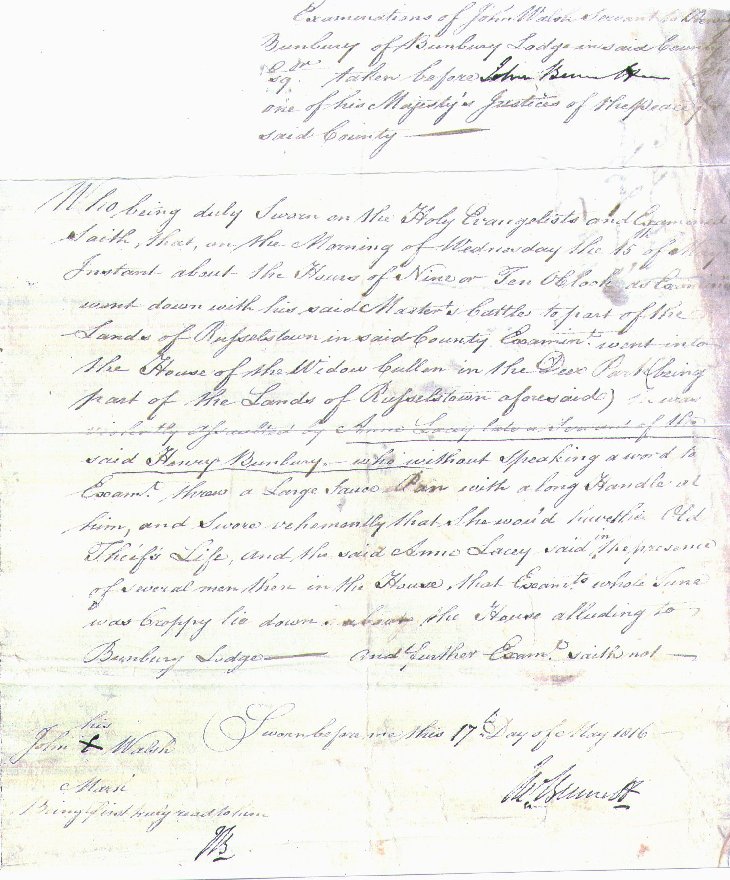 Examinations of John Walsh Servant to Henry
Bunbury of Bunbury Lodge in said County
Esqr. taken before John Bennett
one of his Majesty's Justices of the peace for
said County
Who being duly Sworn on the Holy Evangelists and Examined
Saith, that, on the Morning of Wednesday the 15 of May
Instant about the Hours of Nine or Ten O'Clock as Examint
went down with his said Master's Cattle to part of the
Lands of Russelstown in said County Examint. went into
the House of the Widow Cullen in the Deer Park (being
part of the Lands of Russelstown aforesaid) he was
violently assaulted by Anne Lacey late a Servant of the
said Henry Bunbury, who without Speaking a word to
Examt. threw a Large Sauce Pan with a long Handle at
him, and Swore vehemently that She wou'd have the Old
Theif's Life, and the said Anne Lacey said in the presence
of several men then in the House, that Examts. whole Tune
was Croppy lie down about the House alluding to
Bunbury Lodge and further Examt. saith not
Sworn before me this 17th. Day of May 1816
his
John X Walsh
Mark
Being first truly read to him
JB
Jn. Bennett